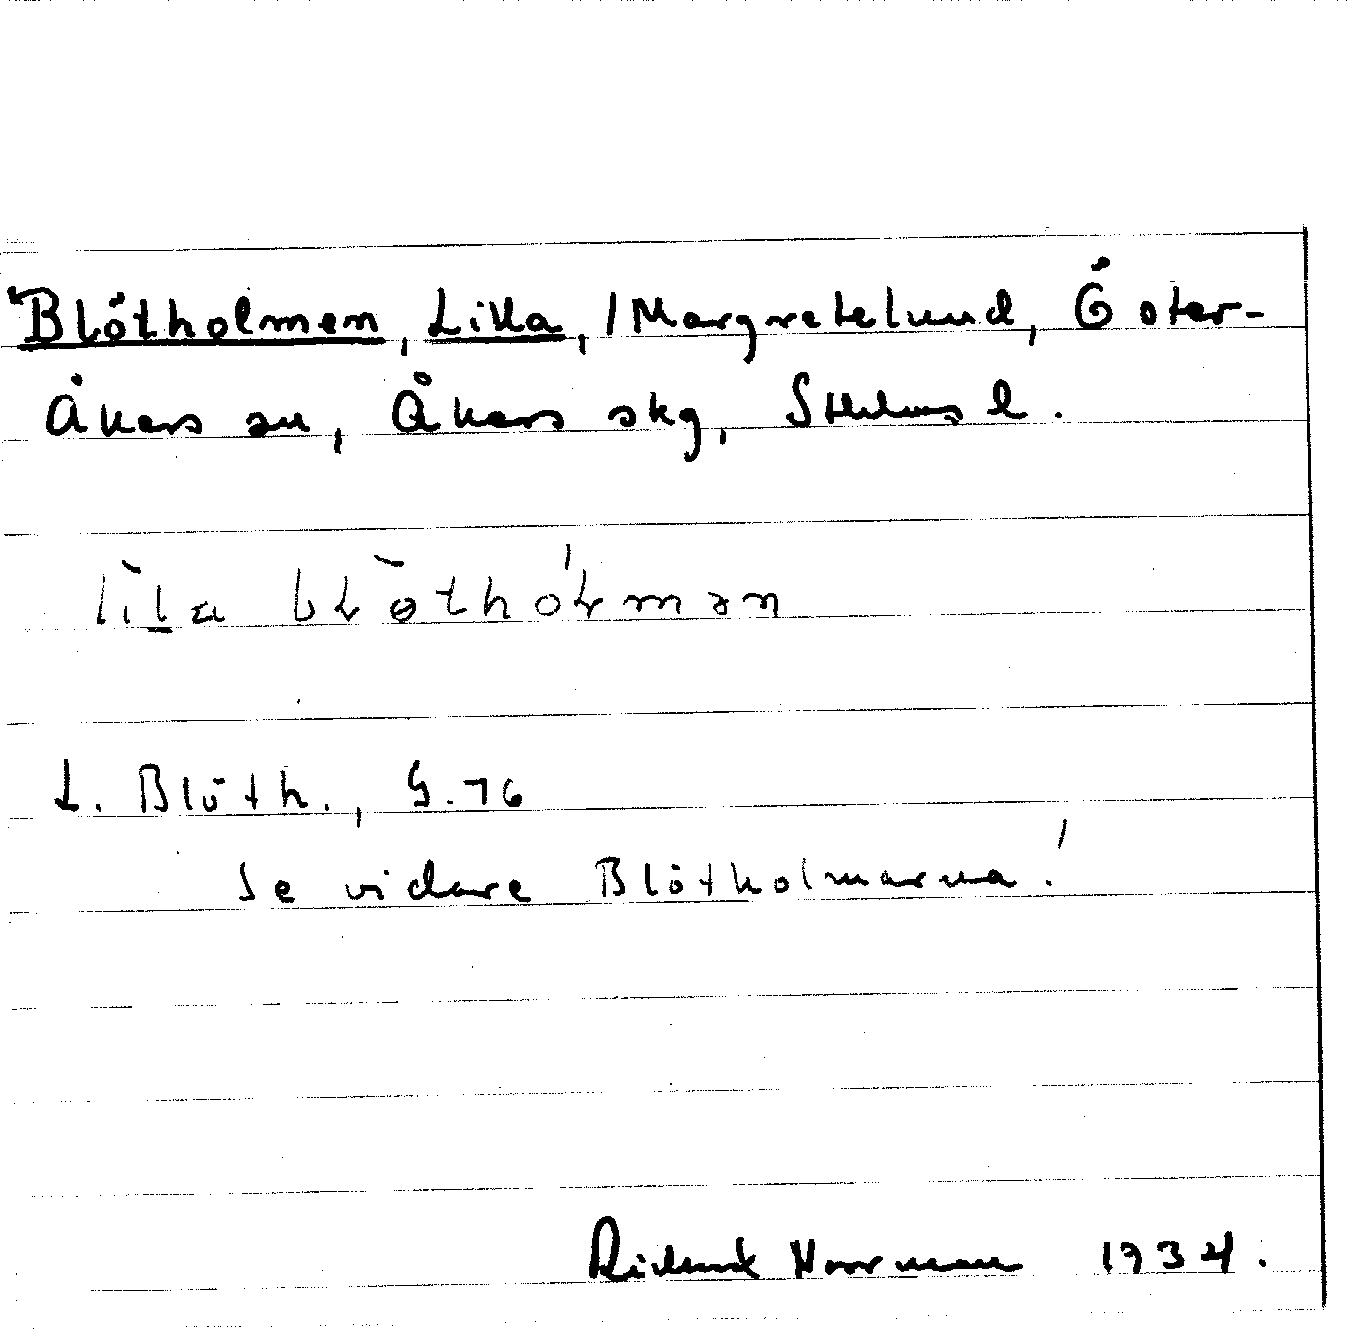 Blötholmen, Lilla, /Margretelund, Öster-
Åkers sn, Åkers skg, Sthlms l.
lìla bløthólmən
L. Blöth., G. 76
Se vidare Blötholmarna!
Rickard Norrman 1934.